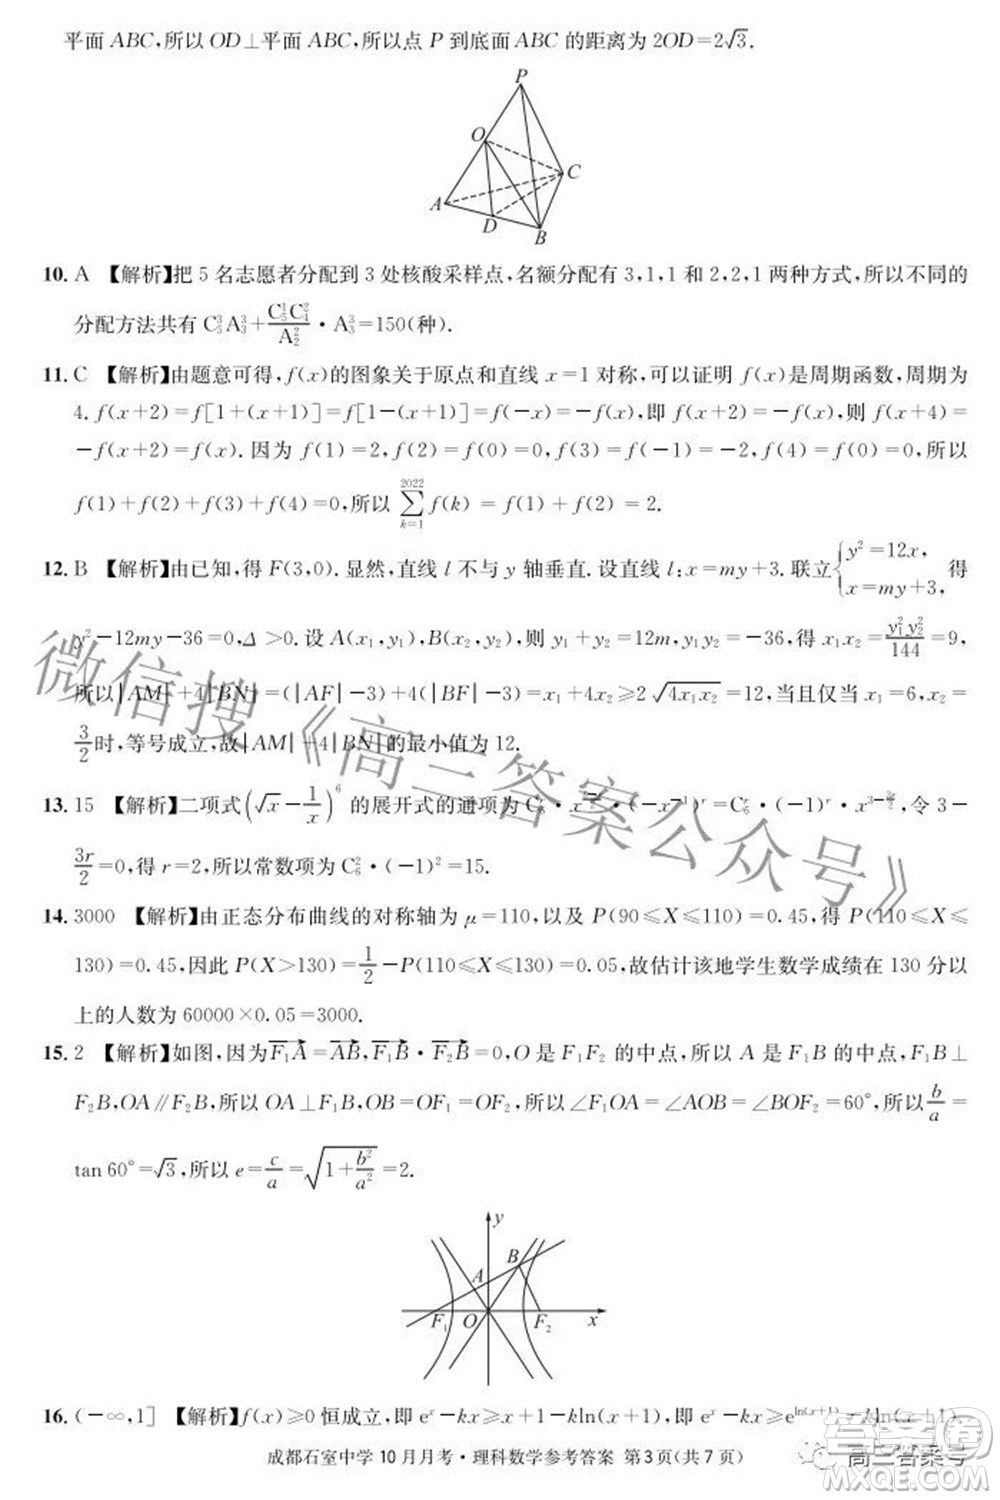 平面 ABC,所以 OD⊥平面 ABC,所以点 P 到底面 ABC 的距离为 2OD=2√3.
P
O
C
A
D
B
10. A 【解析】把 5 名志愿者分配到 3 处核酸采样点,名额分配有 3,1,1 和 2,2,1 两种方式,所以不同的
分配方法共有 C₅³A₃³+(C₅¹C₄²)/(A₂²)·A₃³=150(种).
11. C 【解析】由题意可得,f(x)的图象关于原点和直线 x=1 对称,可以证明 f(x)是周期函数,周期为
4. f(x+2)=f[1+(x+1)]=f[1-(x+1)]=f(-x)=-f(x),即 f(x+2)=-f(x),则 f(x+4)=
-f(x+2)=f(x). 因为 f(1)=2,f(2)=f(0)=0,f(3)=f(-1)=-2,f(4)=f(0)=0,所以
f(1)+f(2)+f(3)+f(4)=0,所以 ∑(k=1→2022) f(k)=f(1)+f(2)=2.
12. B 【解析】由已知,得 F(3,0). 显然,直线 l 不与 y 轴垂直. 设直线 l:x=my+3. 联立{y²=12x, x=my+3, 得
y²-12my-36=0,Δ>0. 设 A(x₁,y₁),B(x₂,y₂),则 y₁+y₂=12m,y₁y₂=-36,得 x₁x₂=(y₁²y₂²)/144=9,
所以|AM|+4|BN|=(|AF|-3)+4(|BF|-3)=x₁+4x₂≥2√(4x₁x₂)=12,当且仅当 x₁=6,x₂=
3/2时,等号成立,故|AM|+4|BN|的最小值为 12.
13. 15 【解析】二项式(√x-1/x)⁶的展开式的通项为 C₆ʳ·x^((6-r)/2)·(-x⁻¹)ʳ=C₆ʳ·(-1)ʳ·x^(3-3r/2),令 3-
3r/2=0,得 r=2,所以常数项为 C₆²·(-1)²=15.
14. 3000 【解析】由正态分布曲线的对称轴为 μ=110,以及 P(90≤X≤110)=0.45,得 P(110≤X≤
130)=0.45,因此 P(X>130)=1/2-P(110≤X≤130)=0.05,故估计该地学生数学成绩在 130 分以
上的人数为 60000×0.05=3000.
15. 2 【解析】如图,因为F₁A→=AB→,F₁B→·F₂B→=0,O 是 F₁F₂ 的中点,所以 A 是 F₁B 的中点,F₁B⊥
F₂B,OA∥F₂B,所以 OA⊥F₁B,OB=OF₁=OF₂,所以∠F₁OA=∠AOB=∠BOF₂=60°,所以b/a=
tan 60°=√3,所以 e=c/a=√(1+b²/a²)=2.
y
B
A
F₁
O
F₂
x
16. (-∞,1] 【解析】f(x)≥0 恒成立,即 eˣ-kx≥x+1-kln(x+1),即 eˣ-kx≥e^(ln(x+1))-kln(x+1).
成都石室中学 10 月月考·理科数学参考答案 第 3 页(共 7 页)
微信搜《高三答案公众号》
高三答案号
答案圈
MXQE.COM